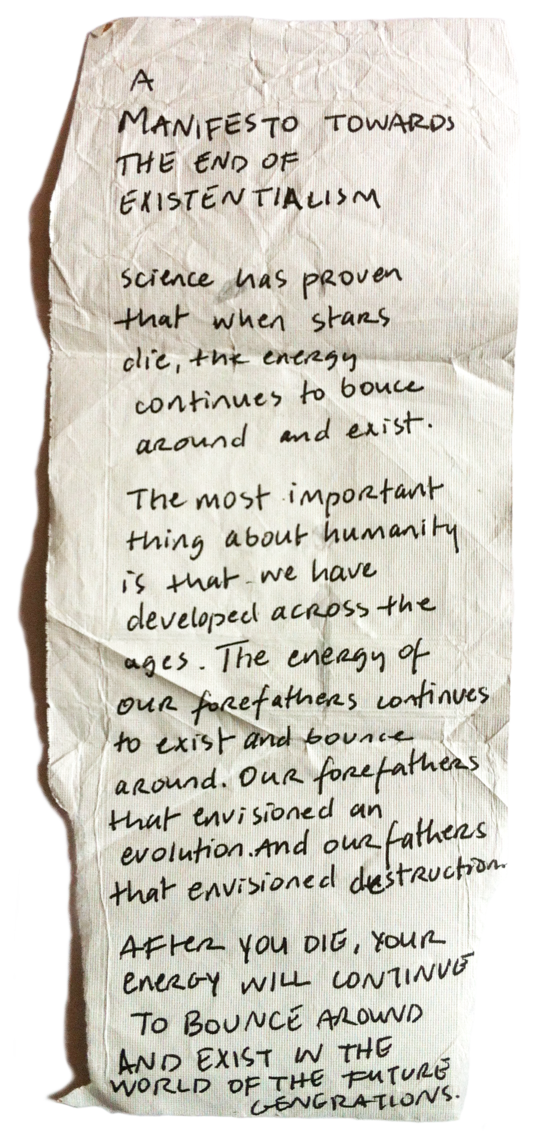 A
MANIFESTO TOWARDS
THE END OF
EXISTENTIALISM
science has proven
that when stars
die, the energy
continues to bouce
around and exist.
The most important
thing about humanity
is that we have
developed across the
ages. The energy of
our forefathers continues
to exist and bounce
around. Our forefathers
that envisioned an
evolution. And our fathers
that envisioned destruction
AFTER YOU DIE, YOUR
ENERGY WILL CONTINUE
TO BOUNCE AROUND
AND EXIST IN THE
WORLD OF THE FUTURE
GENGRATIONS.